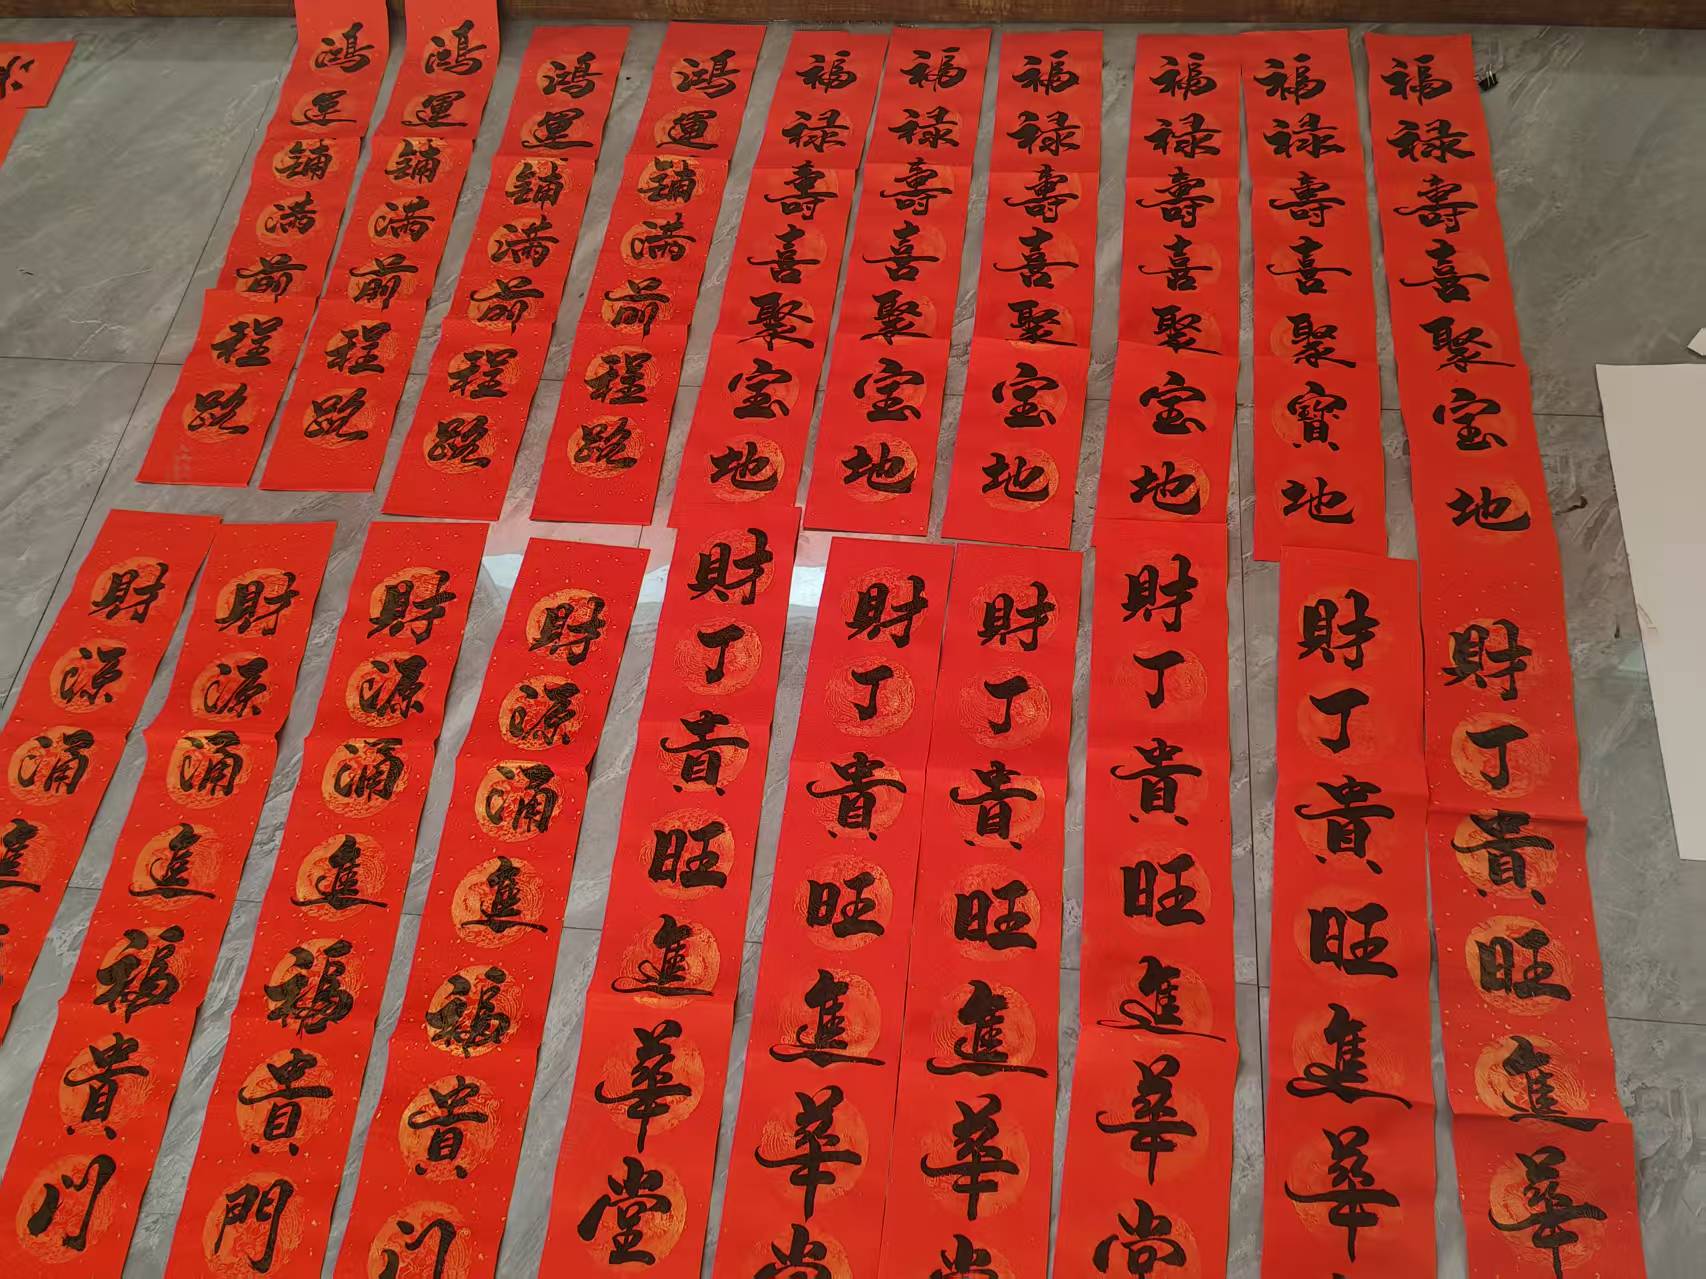 鴻運鋪满前程路
鴻運鋪满前程路
鴻運鋪满前程路
鴻運鋪满前程路
福禄壽喜聚宝地
福禄壽喜聚宝地
福禄壽喜聚宝地
福禄壽喜聚宝地
福禄壽喜聚寶地
福禄壽喜聚宝地
財源涌進
財源涌進福貴门
財源涌進福貴門
財源涌進福貴门
財丁貴旺進華堂
財丁貴旺進華
財丁貴旺進華
財丁貴旺進華堂
財丁貴旺進華
財丁貴旺進華